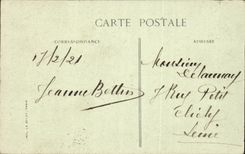 CARTE POSTALE
CORRESPONDANCE
ADRESSE
17/2/21
Jeanne Bottin
Monsieur
Delaunay
7 Rue Petit
Clichy
Seine